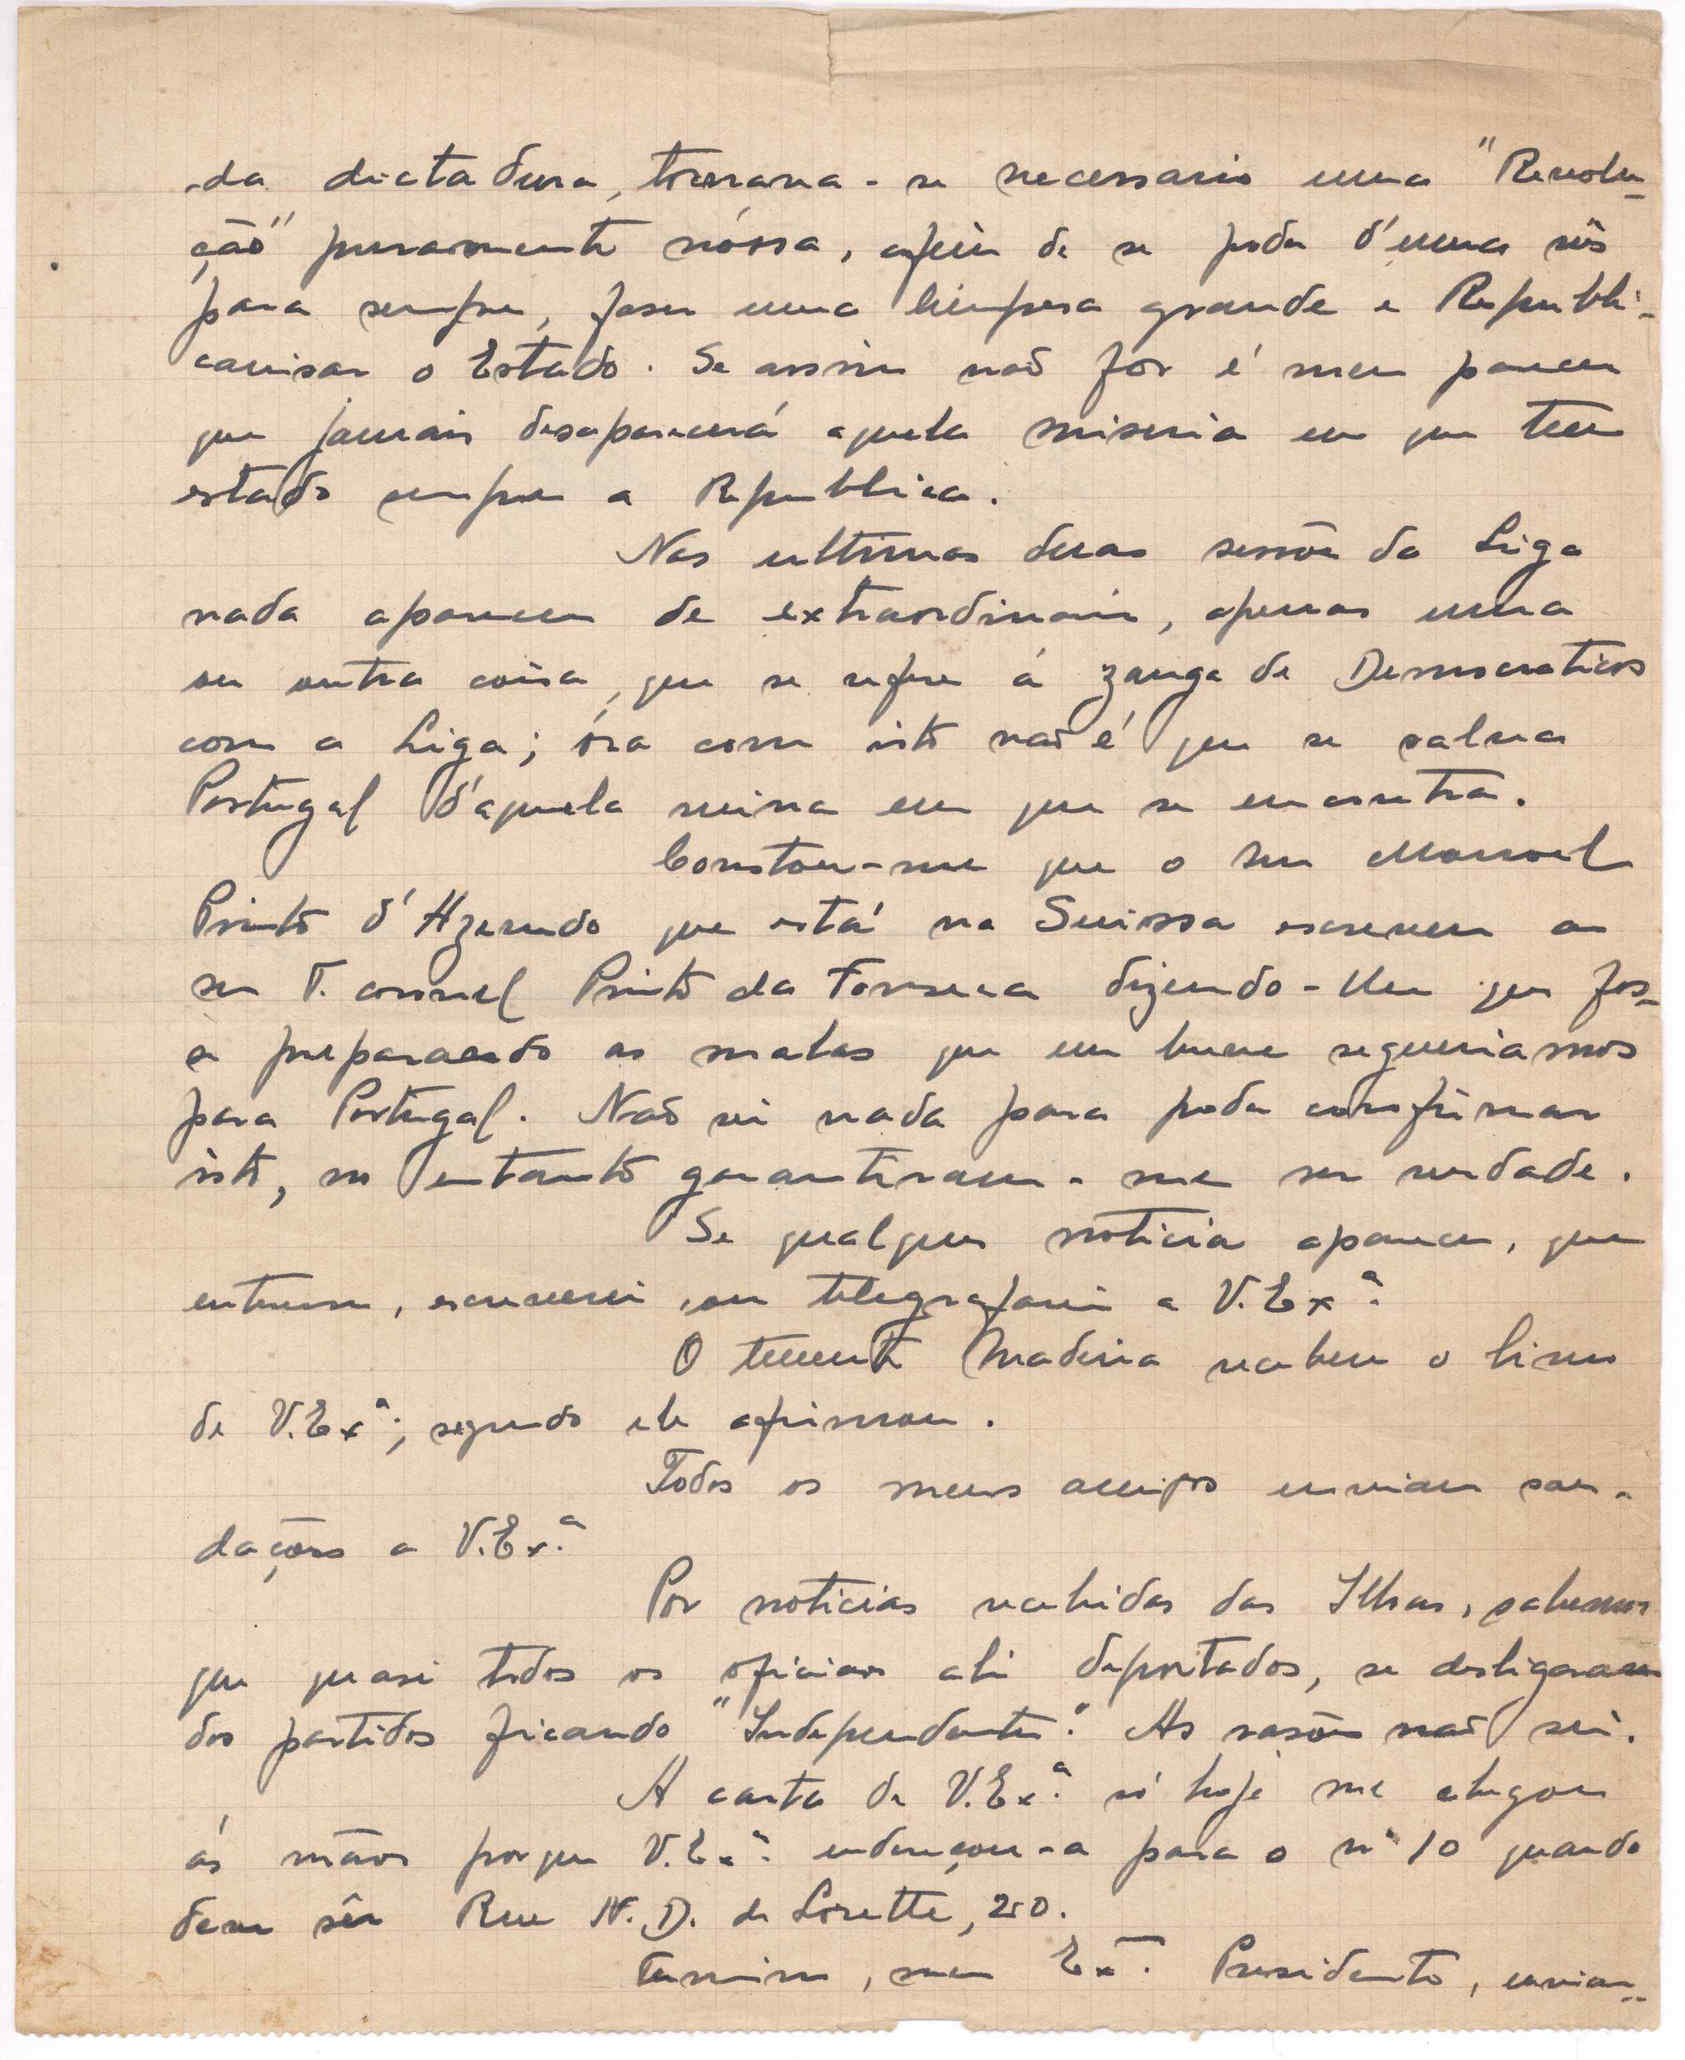 da dictadura, tornava-se necessario uma "Revolu-
ção" puramente nóssa, afim de se poder d'uma vês
para sempre, faser uma limpesa grande e Republi-
canisar o Estado. Se assim não fôr é meu parecer
que jamais desaparecerá aquela miseria em que tem
estado sempre a Republica.
Nas ultimas duas sessões da Liga
nada apareceu de extraordinario, apenas uma
ou outra coisa, que se refere á zanga de Democraticos
com a Liga; óra com isto não é que se salva
Portugal d'aquela ruina em que se encontra.
Constou-me que o Snr Manoel
Pinto d'Azevedo que está na Suissa escreveu ao
snr T. coronel Pinto da Fonseca dizendo-lhe que fos-
se preparando as malas que em breve seguiriamos
para Portugal. Não vi nada para poder comfirmar
isto, no entanto garantiram-me ser verdade.
Se qualquer noticia aparecer, que
interesse, escreverei ou telegrafarei a V. Exª.
O tenente Madeira recebeu o livro
de V. Exª; segundo ele afirmou.
Todos os meus amigos enviam sau-
dações a V. Exª.
Por noticias recebidas das Ilhas, sabemos
que quasi todos os oficiaes ali deportados, se desligaram
dos partidos ficando "Independentes". As rasões não sei.
A carta de V. Exª. só hoje me chegou
ás mãos porque V. Exª. endereçou-a para o nº 10 quando
deve sêr Rue N. D. de Lorette, 20.
Termino, meu Ex.mo Presidente, envian-